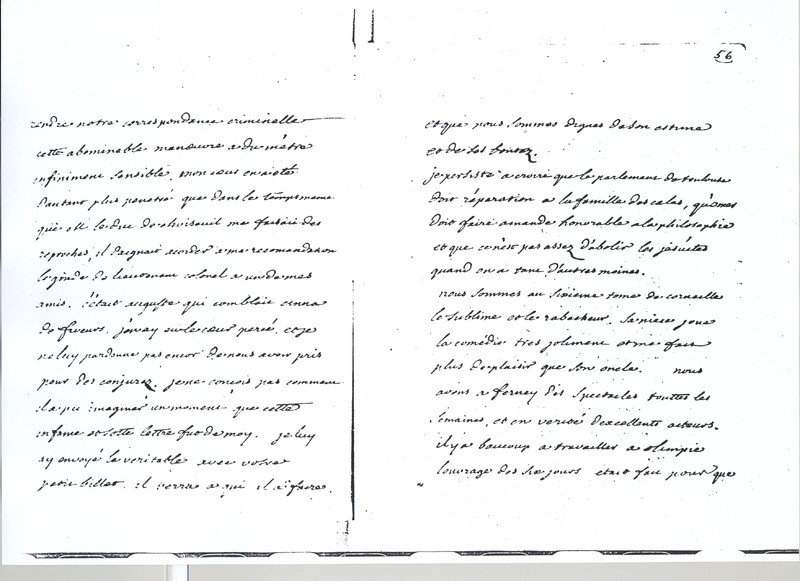 rendre notre correspondance criminelle
cette abominable manœuvre a du m'etre
infiniment sensible. mon cœur en a eté
d'autant plus penetré que dans le temps meme
que Mr le duc de choiseuil me faisait des
reproches, il daignait acorder a ma recomandation
le grade de lieutenant colonel a un de mes
amis. c'etait auguste qui comblait cinna
de faveurs. j'en ay eu le cœur percé, et je
ne luy pardonne pas encor de nous avoir pris
pour des conjurez. je ne conçois pas comment
il a pu imaginer un moment que cette
infame et sotte lettre fut de moy. je luy
ay envoyé la veritable avec votre
petit billet. il verra a qui il a faire.
56
et que nous sommes dignes de son estime
et de ses bontez.
je persiste a croire que le parlement de toulouse
doit réparation a la famille des calas, qu'omer
doit faire amande honorable a la philosophie
et que ce n'est pas assez d'abolir les jésuites
quand on a tant d'autres moines.
nous sommes au sixieme tome de corneille
le sublime et le rabacheur. sa niece joue
la comédie tres joliment et me fait
plus de plaisir que son oncle. nous
avons a ferney des spectacles touttes les
semaines, et en verité d'excellents acteurs.
il y a baucoup a travailler a olimpie
l'ouvrage des six jours etait fait pour que